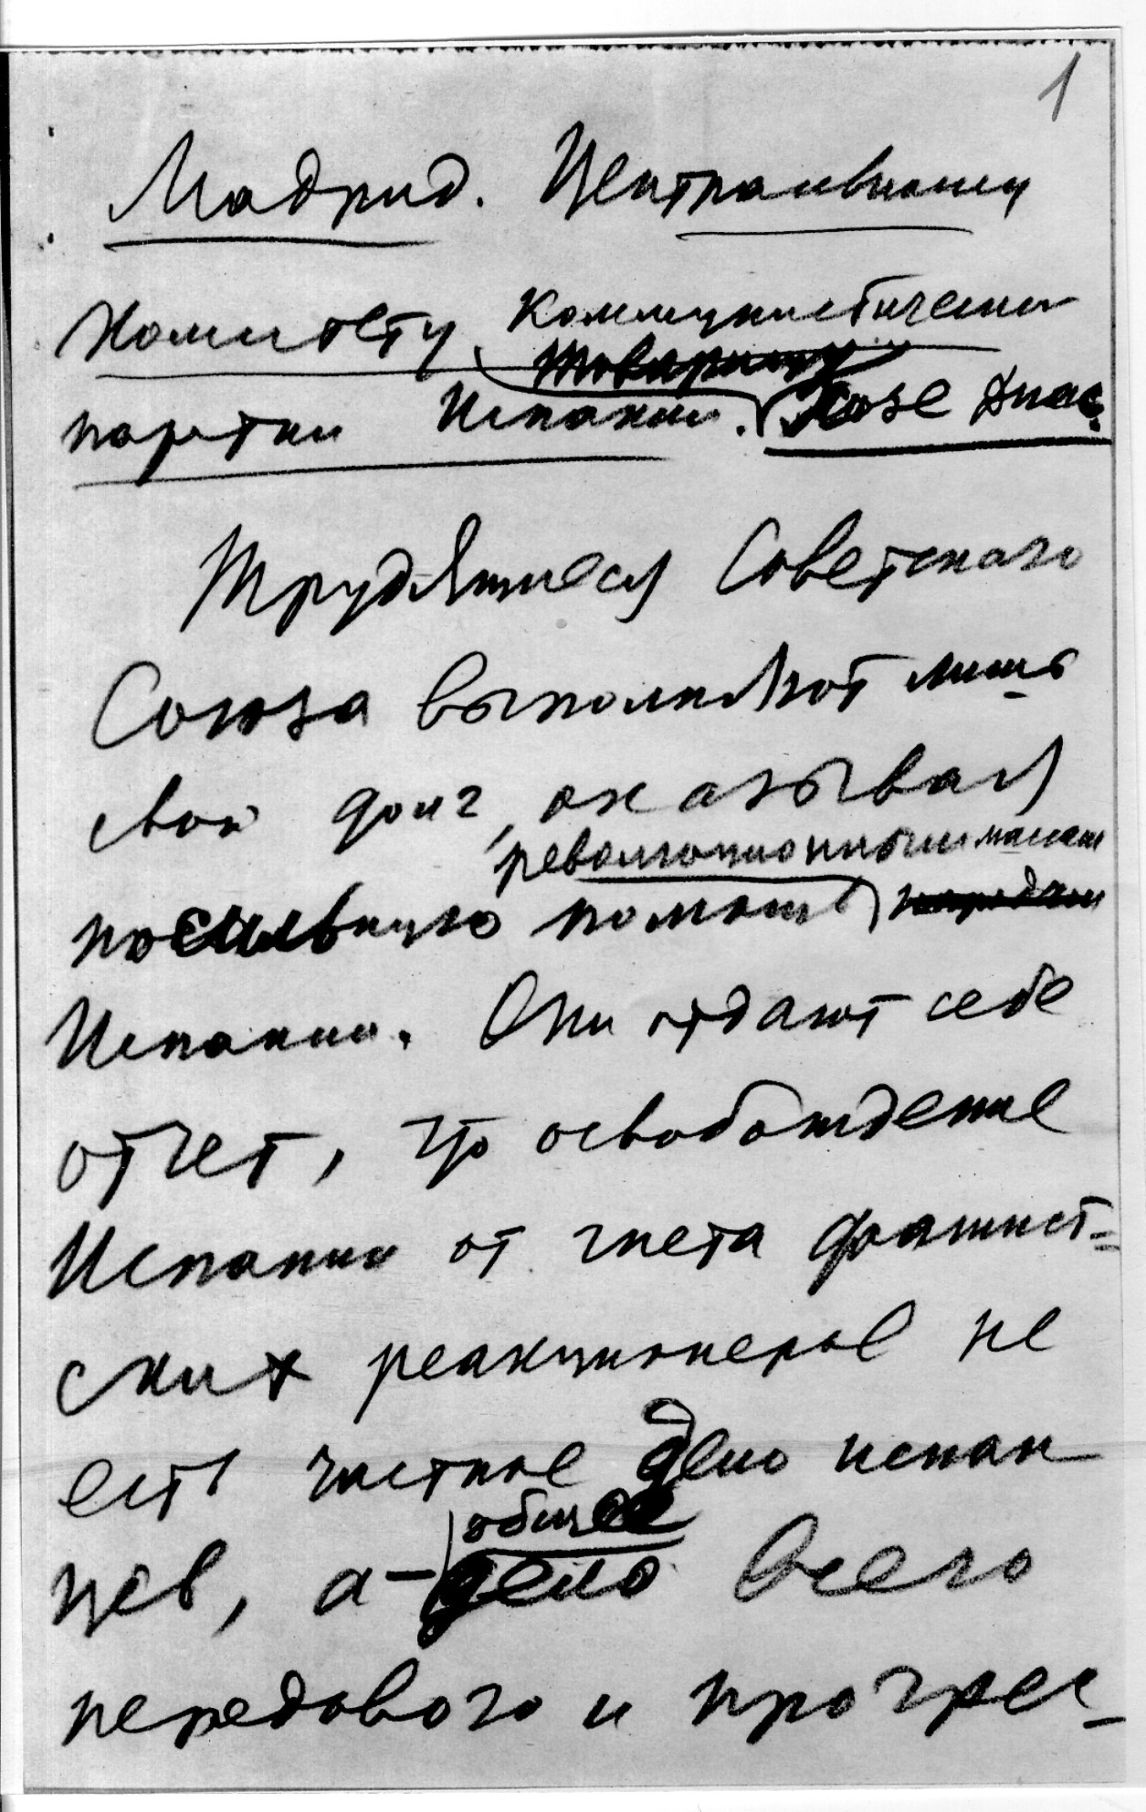 1
Мадрид. Центральному
Комитету Коммунистической
товарищу
партии Испании. Хозе Диас.
Трудящиеся Советского
Союза выполняют лишь
свой долг, оказывая
революционным массам
посильную помощь народам
Испании. Они отдают себе
отчет, что освобождение
Испании от гнета фашист-
ских реакционеров не
есть частное дело испан-
общее
цев, а – дело всего
передового и прогрес-